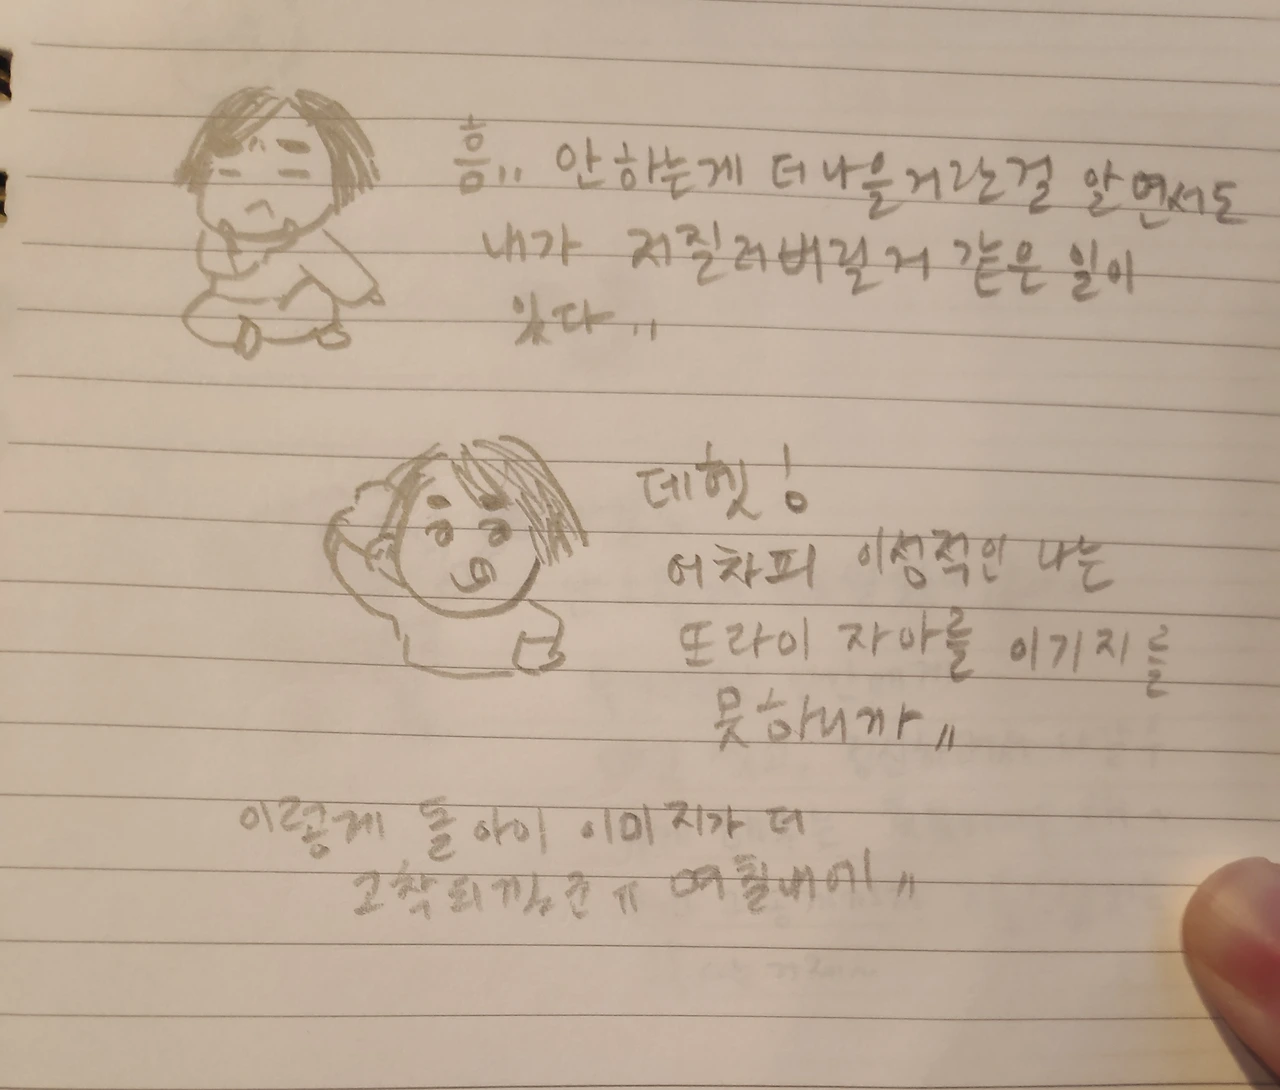 흠,, 안하는게 더 나을거라는걸 알면서도
내가 저질러버릴거 같은 일이
있다,,
데헷!
어차피 이성적인 나는
또라이 자아를 이기지를
못하니까,,
이렇게 돌아이 이미지가 더
고착되겠군ㅠ 며칠내에,,